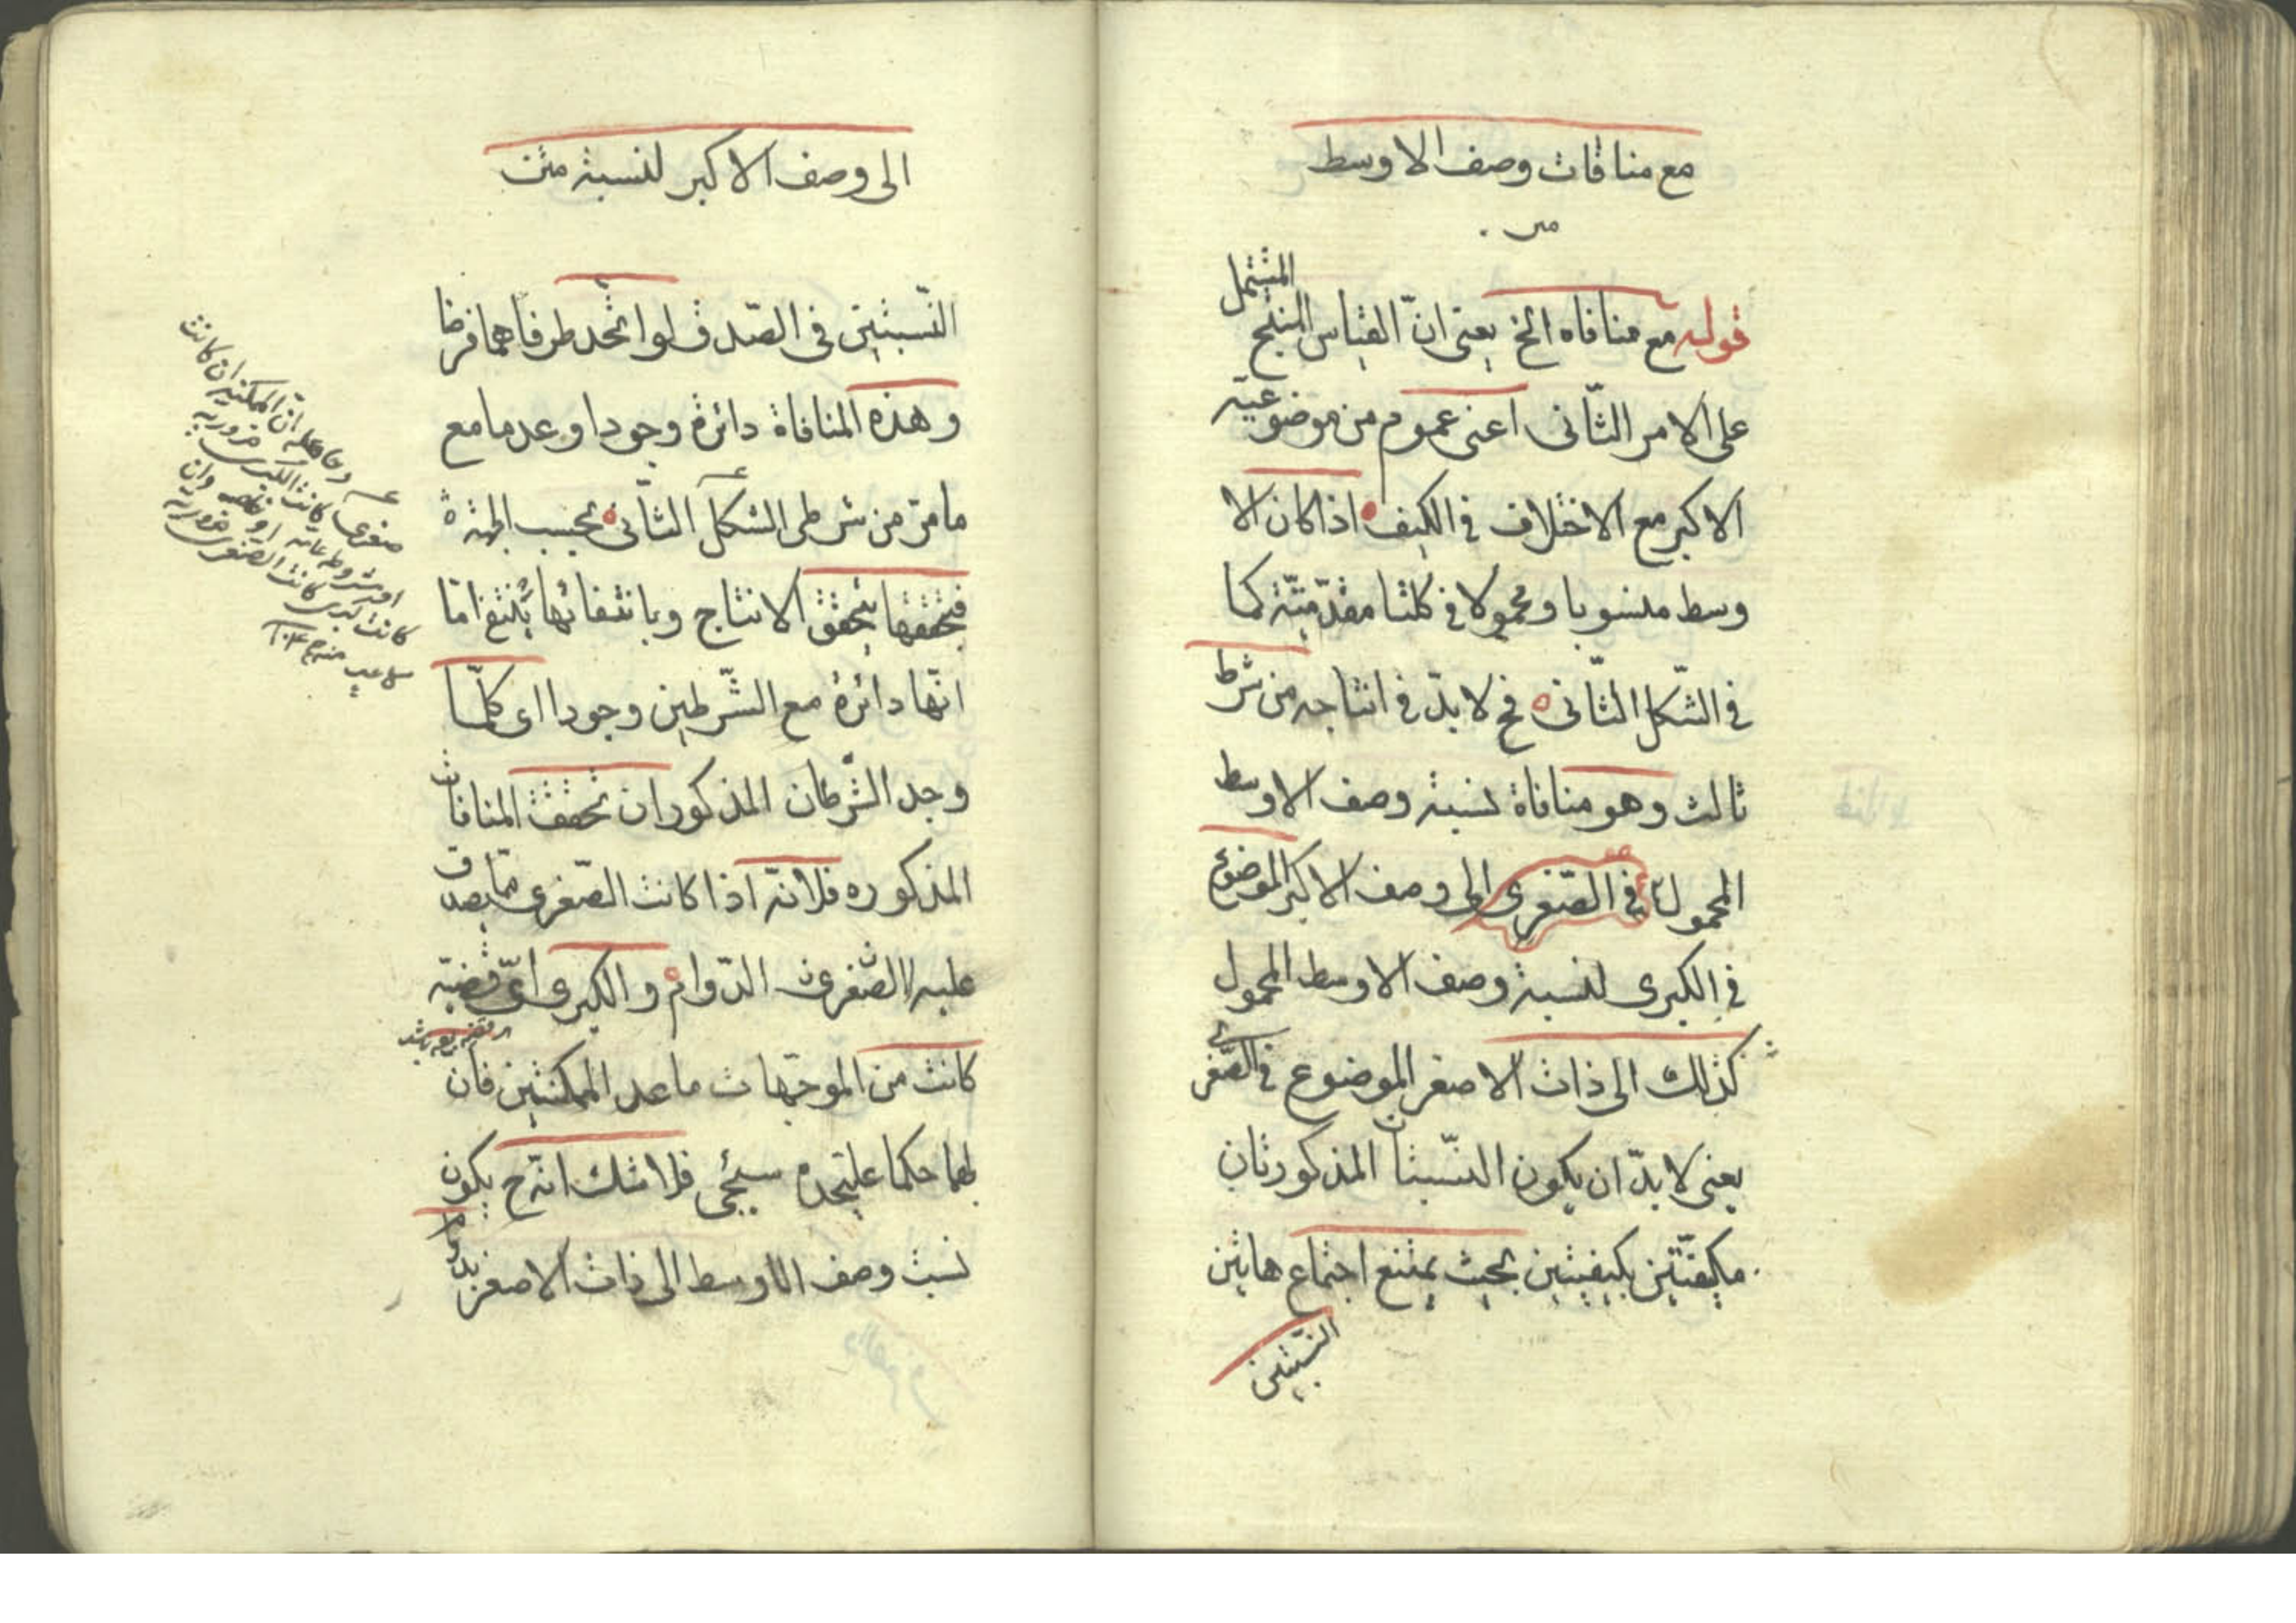 مع منافات وصف الاوسط
قوله مع منافاه الخ يعنى انّ القياس المنتج المشتمل
على الامر الثّانى اعنى عموم من موضوعيّة
الاكبر مع الاختلاف فى الكيف اذا كان الا
وسط منسوبا ومحمولا فى كلتا مقدّمتيّة كما
فى الشّكل الثّانى فح لا بدّ فى انتاجه من شرط
ثالث وهو منافاة نسبة وصف الاوسط
المحمول فى الصّغرى الى وصف الاكبر الموضوع
فى الكبرى لنسبة وصف الاوسط المحمول
كذلك الى ذات الاصغر الموضوع فى الصّغرى
يعنى لا بدّ ان يكون النّسبتان المذكورتان
مكيفتين بكيفيتين بحيث يمتنع اجتماع هاتين
النّسبتين
الى وصف الاكبر لنسبة متن
النّسبتين فى الصّدق لو اتّحد طرفاهما فرضا
وهذه المنافاة دائرة وجودا وعدما مع
ما مرّ من شرطى الشكل الثّانى بحسب الجهة
فبتحققها يتحقق الانتاج وبانتفائها ينتفى امّا
انّها دائرة مع الشّرطين وجودا اى كلّما
وجد الشّرطان المذكوران تحققت المنافات
المذكوره فلانّه اذا كانت الصّغرى ممّا يصدق
عليه الدّوام والكبرى اىّ قضيّة
كانت من الموجّهات ما عدا الممكنتين فان
لهما حكما عليحده سيجئ فلا شك انّه ح يكون
نسبت وصف الاوسط الى ذات الاصغر بدوام
صغرى كانت الكبرى ضرورية
كانت كبرى كانت الصغرى ضرورية